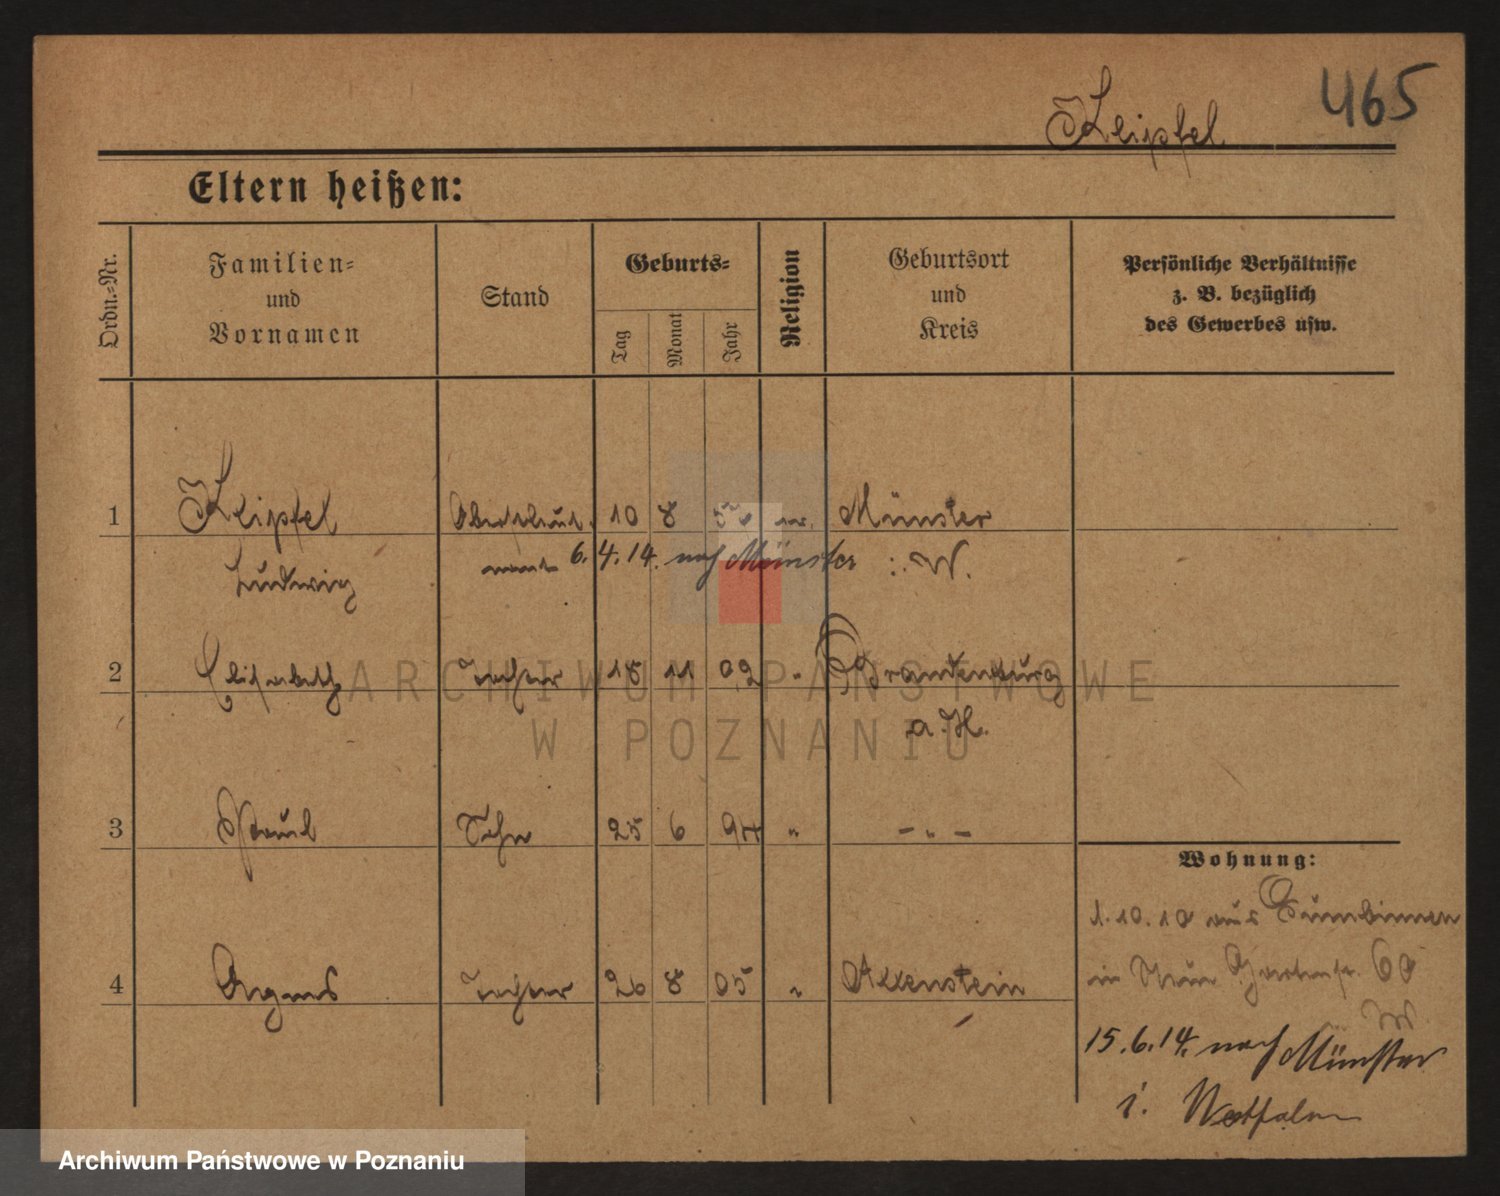 465
Keipfel
Eltern heißen:
Ordn.-Nr.
Familien-
und
Vornamen
Stand
Geburts-
Tag
Monat
Jahr
Religion
Geburtsort
und
Kreis
Persönliche Verhältnisse
z. B. bezüglich
des Gewerbes usw.
1 Keipfel 10 8 Münster
Ludwig
6.4.14. nach Münster i. W.
2 Elisabeth Tochter 18 11 02 " Brandenburg
a. H.
3 Paul Sohn 25 6 94 " - " -
Wohnung:
1.10.10 aus Gumbinnen
4 Agnes Tochter 26 8 05 " Allenstein
in Gartenstr. 60
W
15.6.14. nach Münster
i. Westfalen
ARCHIWUM PAŃSTWOWE
W POZNANIU
Archiwum Państwowe w Poznaniu